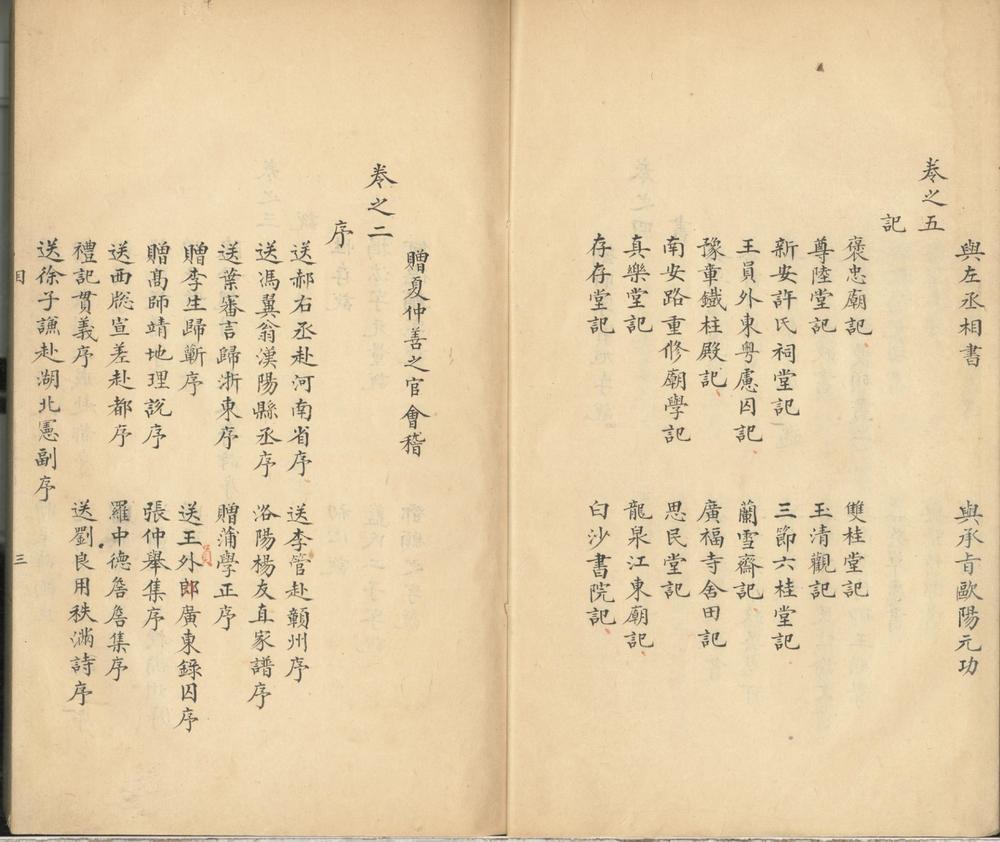 與左丞相書　與承旨歐陽元功
卷之五
記
褒忠廟記　雙桂堂記
尊陸堂記　玉清觀記
新安許氏祠堂記　三節六桂堂記
王員外東粤慮囚記　蘭雪齋記
豫章鐵柱殿記　廣福寺舍田記
南安路重修廟學記　思民堂記
真樂堂記　龍泉江東廟記
存存堂記　白沙書院記
贈夏仲善之官會稽
卷之二
序
送郝右丞赴河南省序　送李管赴贛州序
送馮翼翁漢陽縣丞序　洛陽楊友直家譜序
送葉審言歸浙東序　贈蒲學正序
員
贈李生歸蘄序　送王外郎廣東錄囚序
贈髙師靖地理說序　張仲舉集序
送西宣差赴都序　羅中德詹詹集序
禮記貫義序　送劉良用秩滿詩序
送徐子謙赴湖北憲副序
目　三